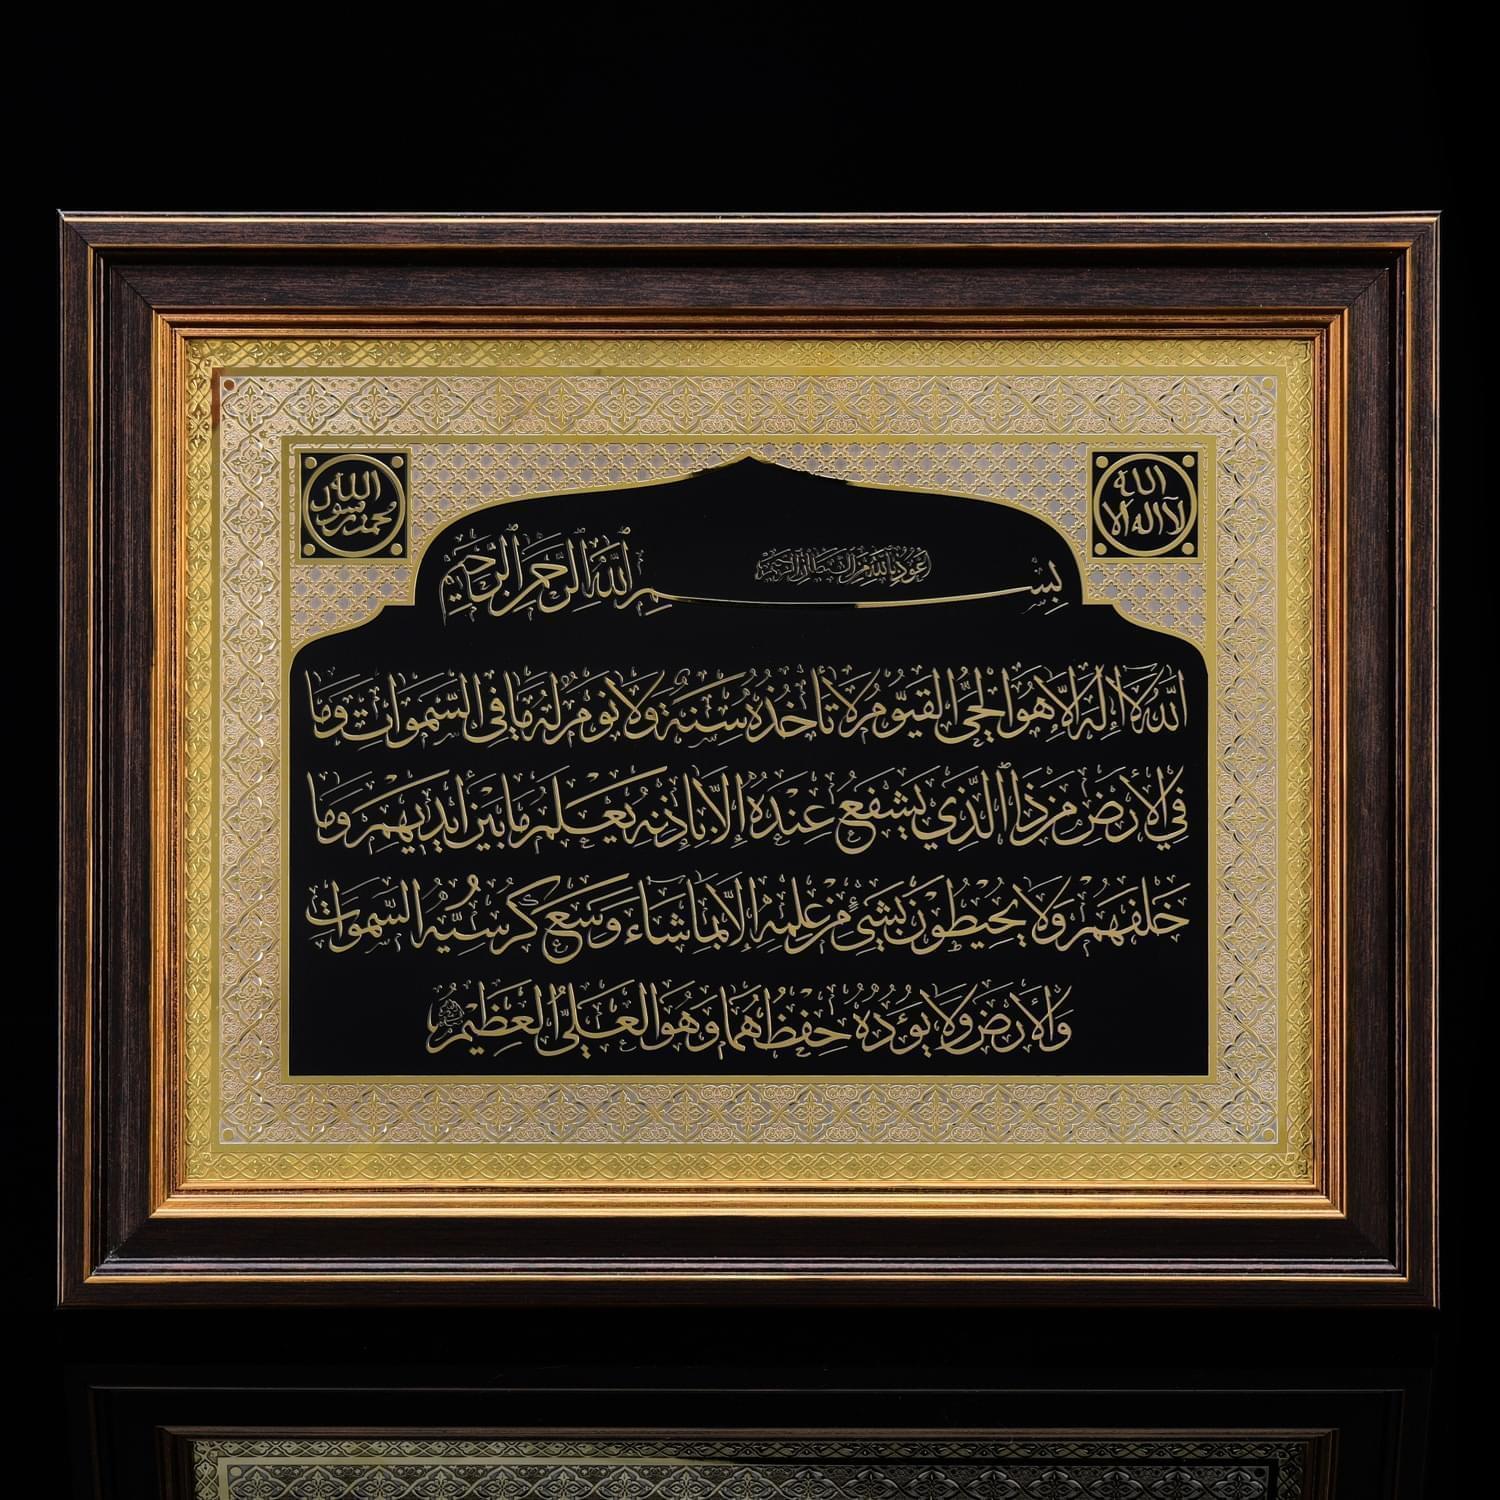 لا اله الا الله
محمد رسول الله
اعوذ بالله من الشيطان الرجيم
بسم الله الرحمن الرحيم
الله لا إله إلا هو الحي القيوم لا تأخذه سنة ولا نوم له ما في السموات وما
في الأرض من ذا الذي يشفع عنده إلا بإذنه يعلم ما بين أيديهم وما
خلفهم ولا يحيطون بشيء من علمه إلا بما شاء وسع كرسيه السموات
والأرض ولا يؤده حفظهما وهو العلي العظيم